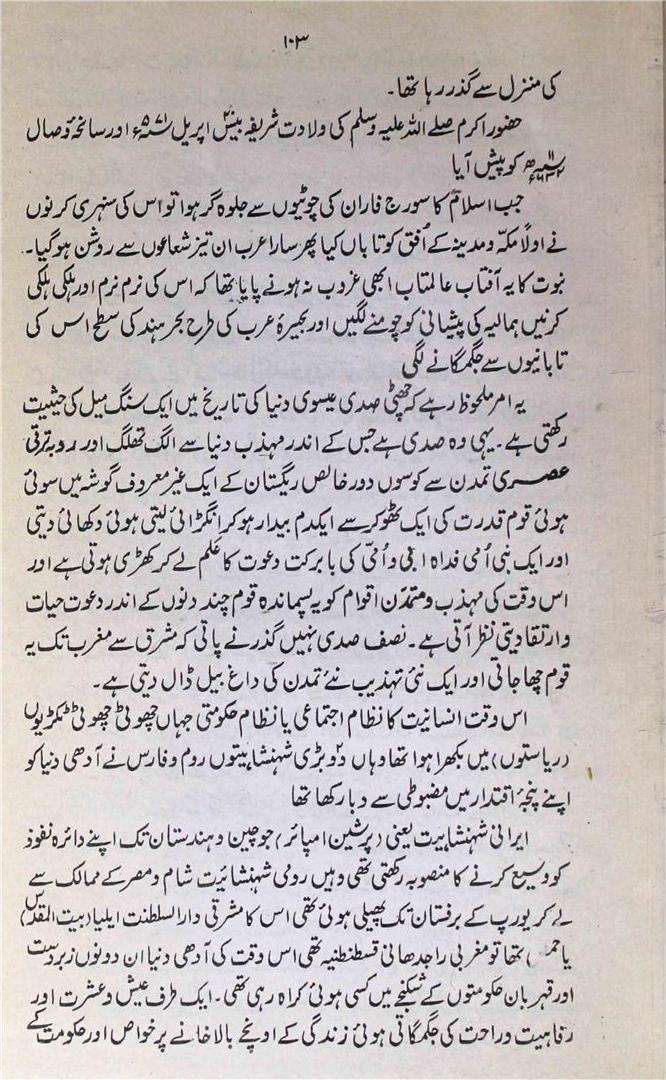 ۱۰۳
کی منزل سے گذر رہا تھا۔
حضور اکرم صلے اللہ علیہ وسلم کی ولادت شریفہ بیس ۲۰ اپریل ۵۷۱ء اور سانحۂ وصال
۱۱ھ ۶۳۲ء کو پیش آیا
جب اسلام کا سورج فاران کی چوٹیوں سے جلوہ گر ہوا تو اس کی سنہری کرنوں
نے اولاً مکہ و مدینہ کے اُفق کو تاباں کیا پھر سارا عرب ان تیز شعاعوں سے روشن ہوگیا۔
نبوت کا یہ آفتاب عالمتاب ابھی غروب نہ ہونے پایا تھا کہ اس کی نرم نرم اور ہلکی ہلکی
کرنیں ہمالیہ کی پیشانی کو چومنے لگیں اور بحیرۂ عرب کی طرح بحر ہند کی سطح اس کی
تابانیوں سے جگمگانے لگی
یہ امر ملحوظ رہے کہ چھٹی صدی عیسوی دنیا کی تاریخ میں ایک سنگ میل کی حیثیت
رکھتی ہے۔ یہی وہ صدی ہے جس کے اندر مہذب دنیا سے الگ تھلگ اور روبہ ترقی
عصری تمدن سے کوسوں دور خالص ریگستان کے ایک غیر معروف گوشہ میں سوئی
ہوئی قوم قدرت کی ایک ٹھوکر سے ایکدم بیدار ہوکر انگڑائی لیتی ہوئی دکھائی دیتی
اور ایک نبی اُمی فداہ ابی و اُمّی کی بابرکت دعوت کا عَلم لے کر کھڑی ہوتی ہے اور
اس وقت کی مہذب و متمدّن اقوام کو یہ پسماندہ قوم چند دنوں کے اندر دعوت حیات
و ارتقا دیتی نظر آتی ہے۔ نصف صدی نہیں گذرنے پاتی کہ مشرق سے مغرب تک یہ
قوم چھا جاتی اور ایک نئی تہذیب نئے تمدن کی داغ بیل ڈال دیتی ہے۔
اس وقت انسانیت کا نظام اجتماعی یا نظام حکومتی جہاں چھوٹی چھوٹی ٹکڑیوں
(ریاستوں) میں بکھرا ہوا تھا وہاں دو ۲ بڑی شہنشاہیتوں روم و فارس نے آدھی دنیا کو
اپنے پنجۂ اقتدار میں مضبوطی سے دبا رکھا تھا
ایرانی شہنشاہیت یعنی (پرشین امپائر) جو چین و ہندستان تک اپنے دائرہ نفوذ
کو وسیع کرنے کا منصوبہ رکھتی تھی وہیں رومی شہنشائیت شام و مصر کے ممالک سے
لے کر یورپ کے برفستان تک پھیلی ہوئی تھی اس کا مشرقی دارالسلطنت ایلیا (بیت المقدس)
یا حمص تھا تو مغربی راجدھانی قسطنطنیہ تھی اس وقت کی آدھی دنیا ان دونوں زبردست
اور قہربان حکومتوں کے شکنجے میں کسی ہوئی کراہ رہی تھی۔ ایک طرف عیش و عشرت اور
رفاہیت و راحت کی جگمگاتی ہوئی زندگی کے اونچے بالاخانے پر خواص اور حکومت کے